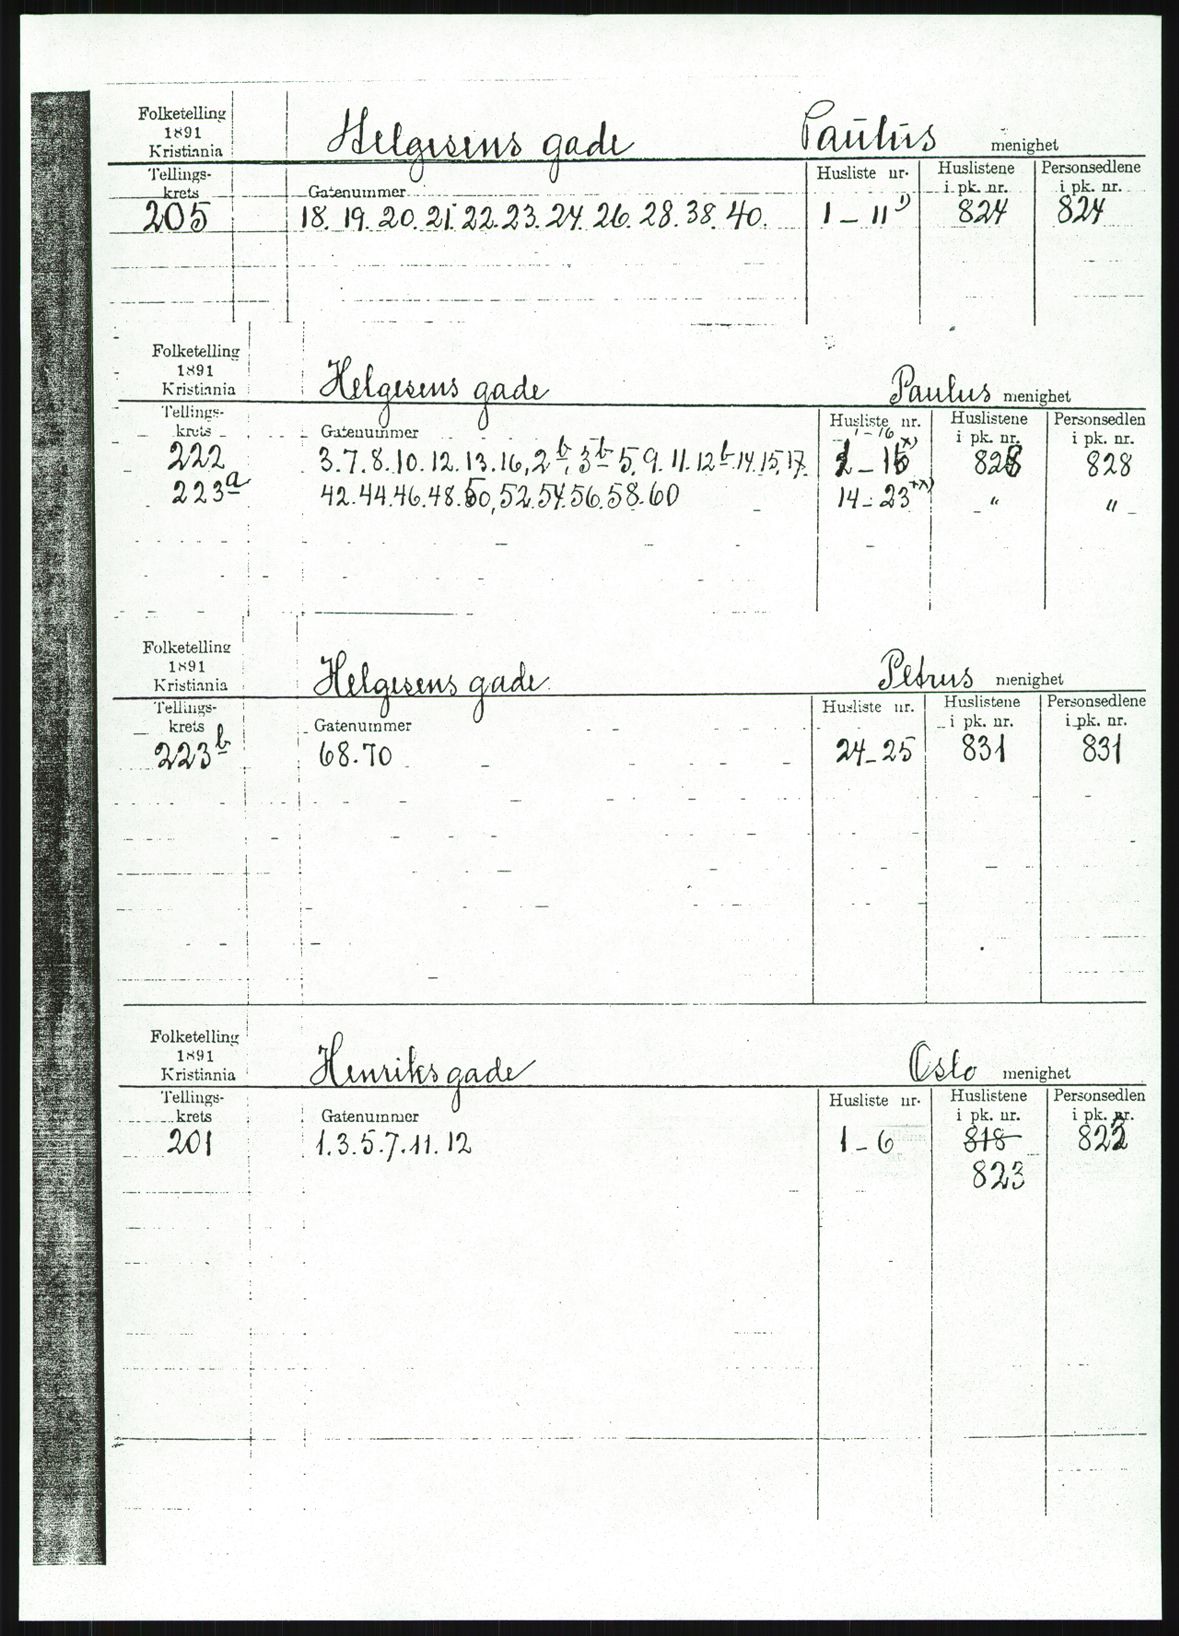 Folketelling
1891
Kristiania
Helgesens gade Paulus menighet
Tellings-
krets Gatenummer Husliste nr. Huslistene i pk. nr. Personsedlene i pk. nr.
205 18. 19. 20. 21. 22. 23. 24. 26. 28. 38. 40. 1 – 11 1) 824 824
Folketelling
1891
Kristiania
Helgesens gade Paulus menighet
Tellings-
krets Gatenummer Husliste nr. Huslistene i pk. nr. Personsedlen i pk. nr.
1 – 16
222 3. 7. 8. 10. 12. 13. 16, 2b, 3b 5, 9. 11. 12b 14. 15, 17. 1 – 16 x) 828 828
223a 42. 44. 46. 48. 50, 52. 54. 56. 58. 60 14 – 23 xx) " "
Folketelling
1891
Kristiania
Helgesens gade. Petrus menighet
Tellings-
krets Gatenummer Husliste nr. Huslistene i pk. nr. Personsedlene i pk. nr.
223b 68. 70 24 – 25 831 831
Folketelling
1891
Kristiania
Henriks gade Oslo menighet
Tellings-
krets Gatenummer Husliste nr. Huslistene i pk. nr. Personsedlen i pk. nr.
201 1. 3. 5. 7. 11. 12 1 – 6 818 822
823